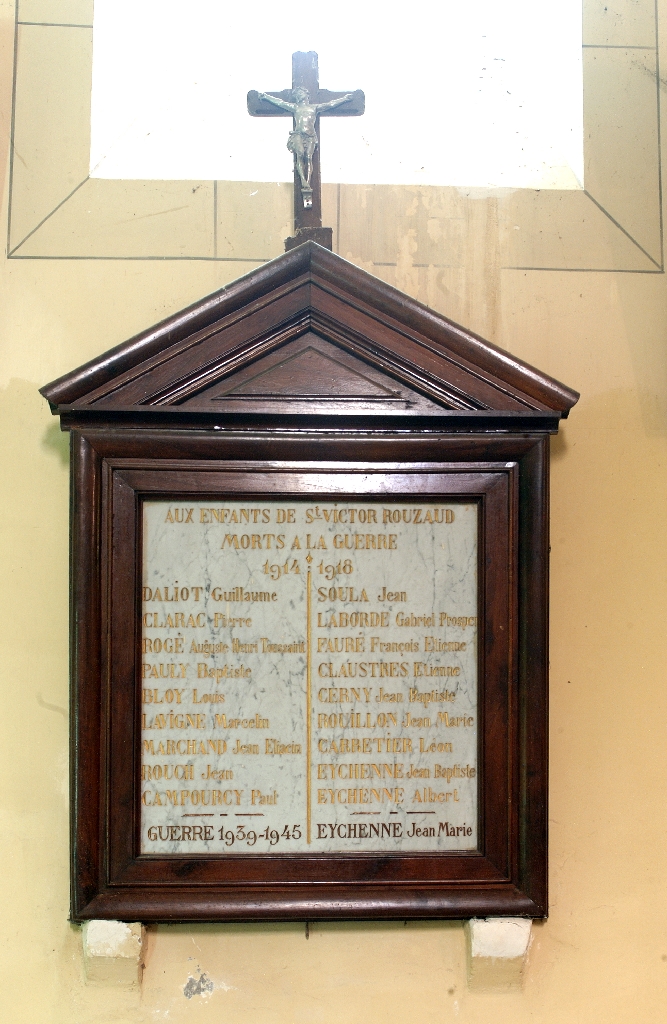 AUX ENFANTS DE St. VICTOR ROUZAUD
MORTS A LA GUERRE
1914 1918
DALIOT Guillaume
CLARAC Pierre
ROGÉ Auguste Henri Toussaint
PAULY Baptiste
BLOY Louis
LAVIGNE Marcelin
MARCHAND Jean Eliacin
ROUCH Jean
CAMPOURCY Paul
SOULA Jean
LABORDE Gabriel Prosper
FAURÉ François Etienne
CLAUSTNES Etienne
CERNY Jean Baptiste
ROUILLON Jean Marie
CARBETIER Léon
EYCHENNE Jean Baptiste
EYCHENNE Albert
GUERRE 1939-1945
EYCHENNE Jean Marie